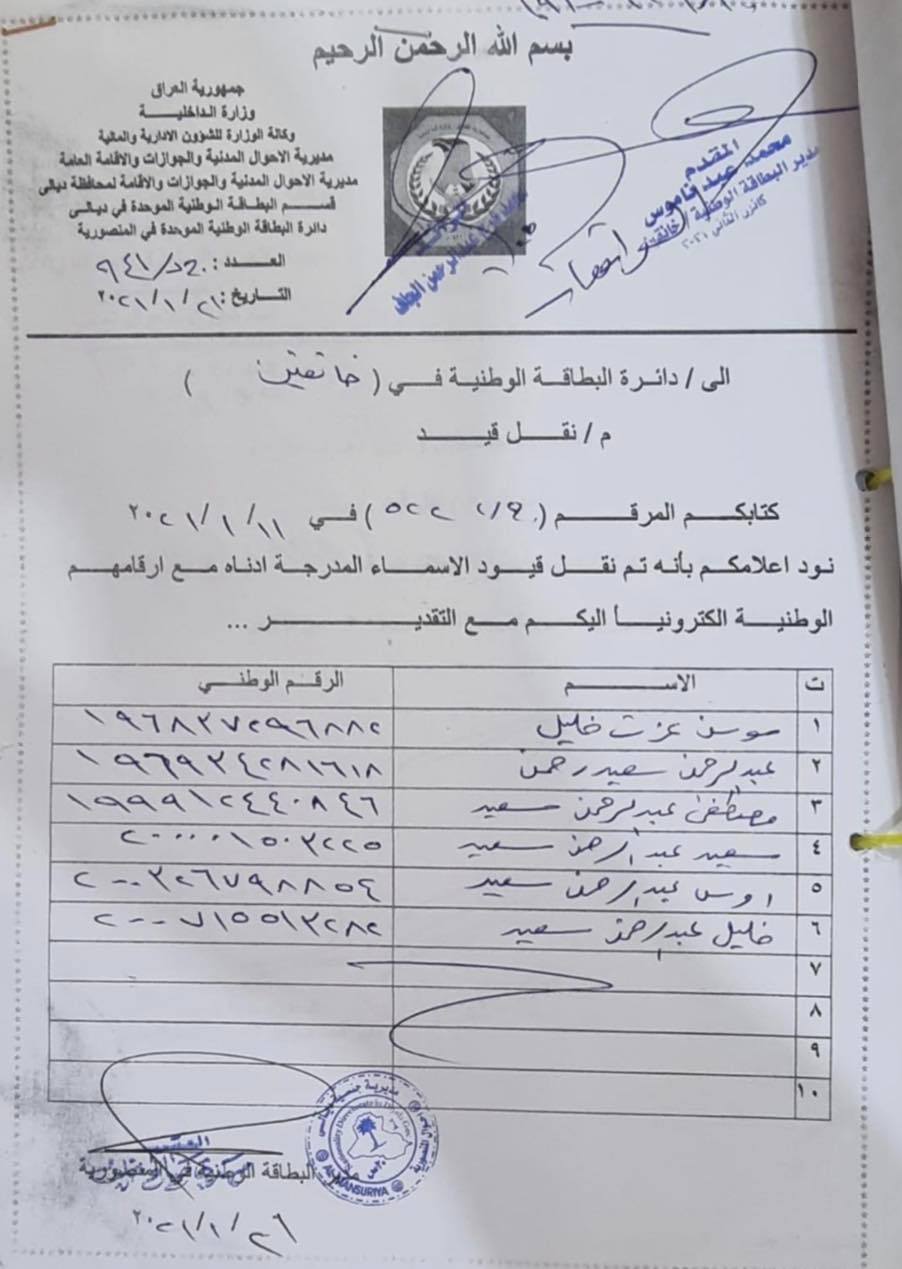 بسم الله الرحمن الرحيم
جمهورية العراق
وزارة الداخلية
وكالة الوزارة للشؤون الادارية والمالية
مديرية الاحوال المدنية والجوازات والاقامة العامة
مديرية الاحوال المدنية والجوازات والاقامة لمحافظة ديالى
قسم البطاقة الوطنية الموحدة في ديالى
دائرة البطاقة الوطنية الموحدة في المنصورية
العدد :
التاريخ : ٢٠٢١/١/٢١
المقدم
محمد عبد قاموس
مدير البطاقة الوطنية / خانقين
كانون الثاني ٢٠٢١
الى / دائرة البطاقة الوطنية في ( خانقين )
م / نقل قيد
كتابكم المرقم ( ٥٢٢ ) في ٢٠٢١/١/١١
نود اعلامكم بأنه تم نقل قيود الاسماء المدرجة ادناه مع ارقامهم
الوطنية الكترونياً اليكم مع التقدير ...
ت الاسم الرقم الوطني
١ سوسن عزت خليل ١٩٦٨٣٧٢٩٦٨٨٢
٢ عبدالرحمن سعيد رحمن ١٩٦٩٣٤٢٨١٦١٨
٣ مصطفى عبدالرحمن سعيد ١٩٩٩١٢٤٤٠٨٤٦
٤ سعيد عبدالرحمن سعيد ٢٠٠٠٠١٥٠٣٢٢٥
٥ اوس عبدالرحمن سعيد ٢٠٠٣٢٦٧٩٨٨٥٤
٦ خليل عبدالرحمن سعيد ٢٠٠٧١٥٥١٣٢٨٢
٧
٨
٩
١٠
مدير البطاقة الوطنية في المنصورية
AL MANSURIYA
٢٠٢١/١/٢٦